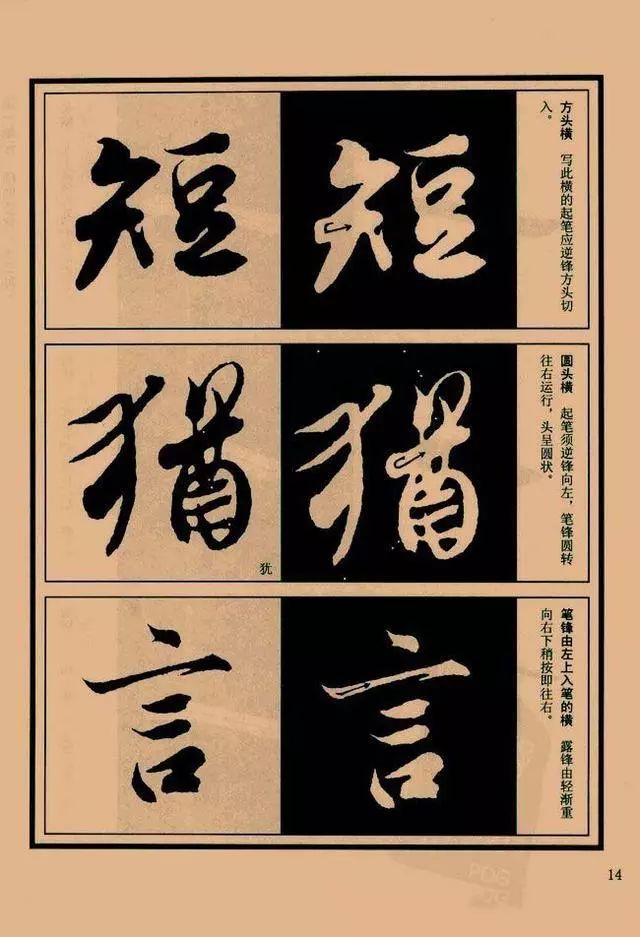 短
短
方头横　写此横的起笔应逆锋方头切
入。
猶
猶
犹
圆头横　起笔须逆锋向左，笔锋圆转
往右运行，头呈圆状。
言
言
笔锋由左上入笔的横　露锋由轻渐重
向右下稍按即往右。
14
PDG